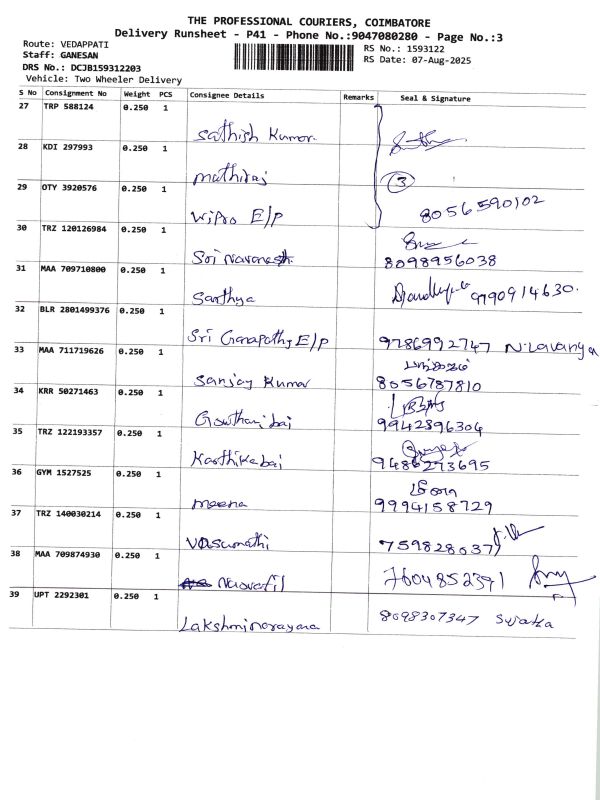 THE PROFESSIONAL COURIERS, COIMBATORE
Delivery Runsheet - P41 - Phone No.:9047080280 - Page No.:3
Route: VEDAPPATI
RS No.: 1593122
Staff: GANESAN
RS Date: 07-Aug-2025
DRS No.: DCJB159312203
Vehicle: Two Wheeler Delivery
S No Consignment No Weight PCS Consignee Details Remarks Seal & Signature
27 TRP 588124 0.250 1
Sathish Kumar
28 KDI 297993 0.250 1
Mathiraj
3
29 OTY 3920576 0.250 1
Wipro E/P 8056590102
30 TRZ 120126984 0.250 1
Sri 8098956038
31 MAA 709710800 0.250 1
Sarthya 9790914630.
32 BLR 2801499376 0.250 1
Sri Ganapathy E/P 9786992747 N.Lavanya
33 MAA 711719626 0.250 1
Sanjay Kumar 8056787810
34 KRR 50271463 0.250 1
Gowthami bai 9942896304
35 TRZ 122193357 0.250 1
Karthika bai 9486273695
36 GYM 1527525 0.250 1
மீனா
meena 9994158729
37 TRZ 140030214 0.250 1
Vasumathi
38 MAA 709874930 0.250 1
7604852391
39 UPT 2292301 0.250 1
Lakshminarayana 8098307347 Sujatha